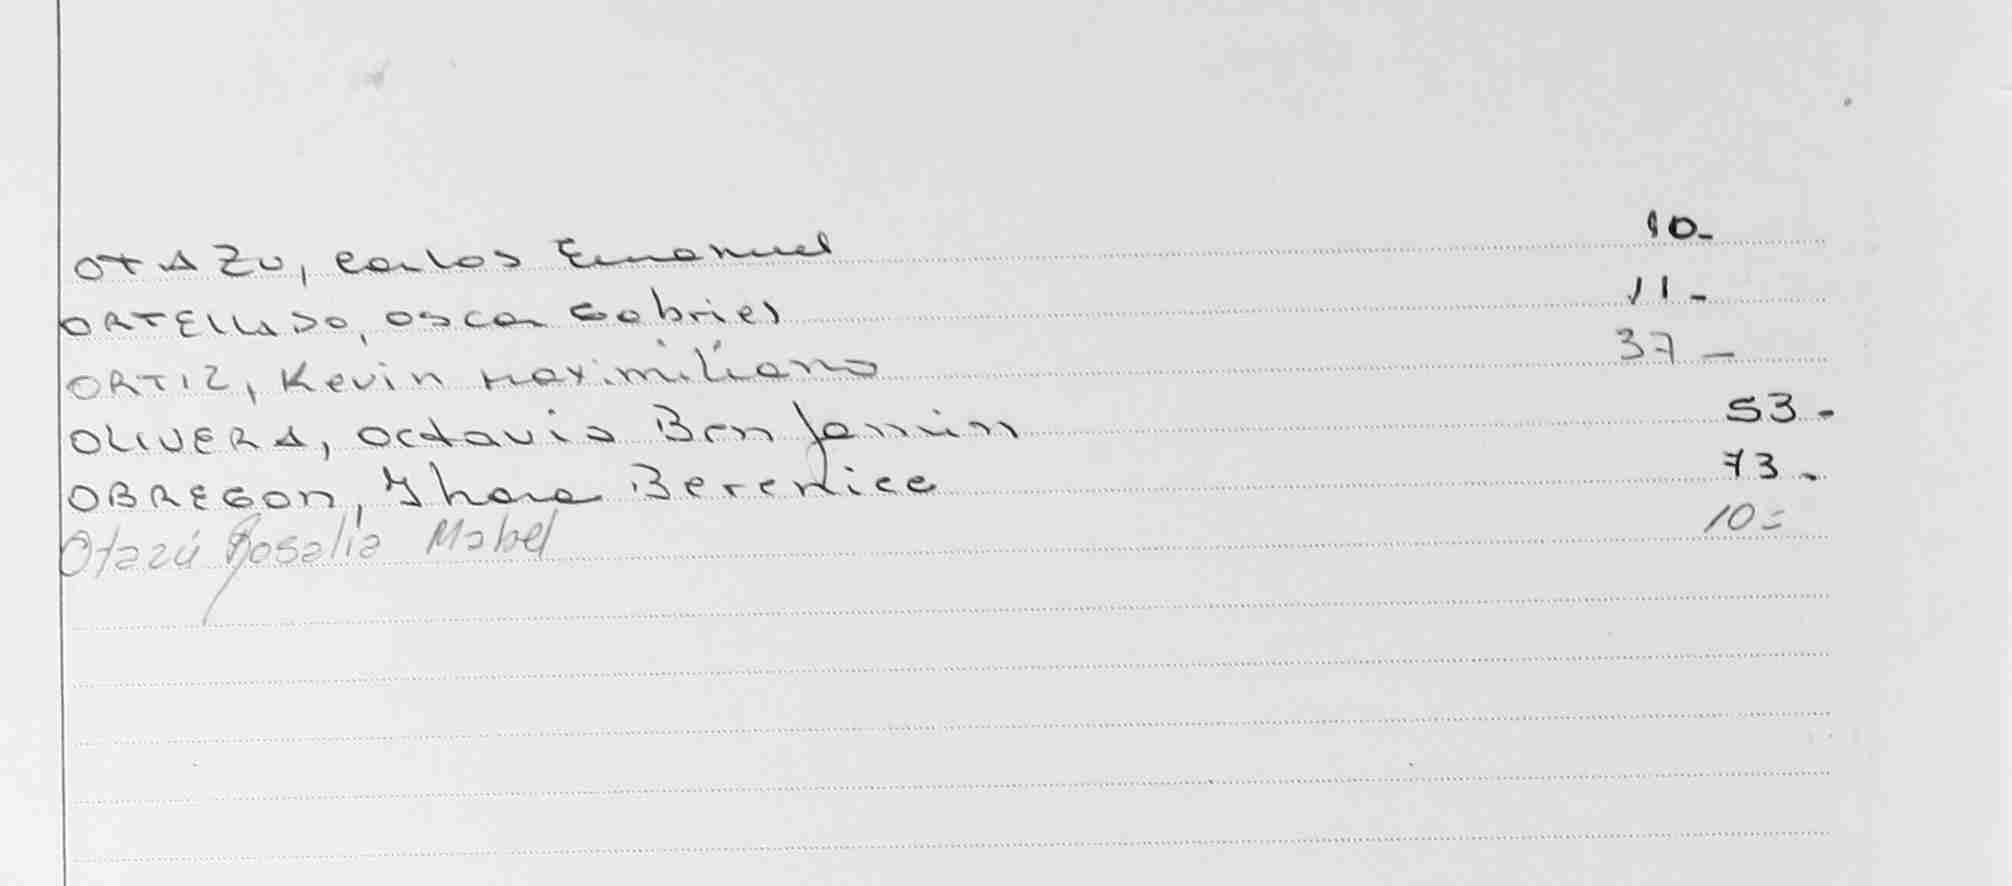 OTAZU, Carlos Emanuel 10-
ORTELLADO, Oscar Gabriel 11-
ORTIZ, Kevin Maximiliano 37-
OLIVERA, Octavio Benjamin 53-
OBREGON, Ihara Berenice 73.
Otazú Rosalia Mabel 10=